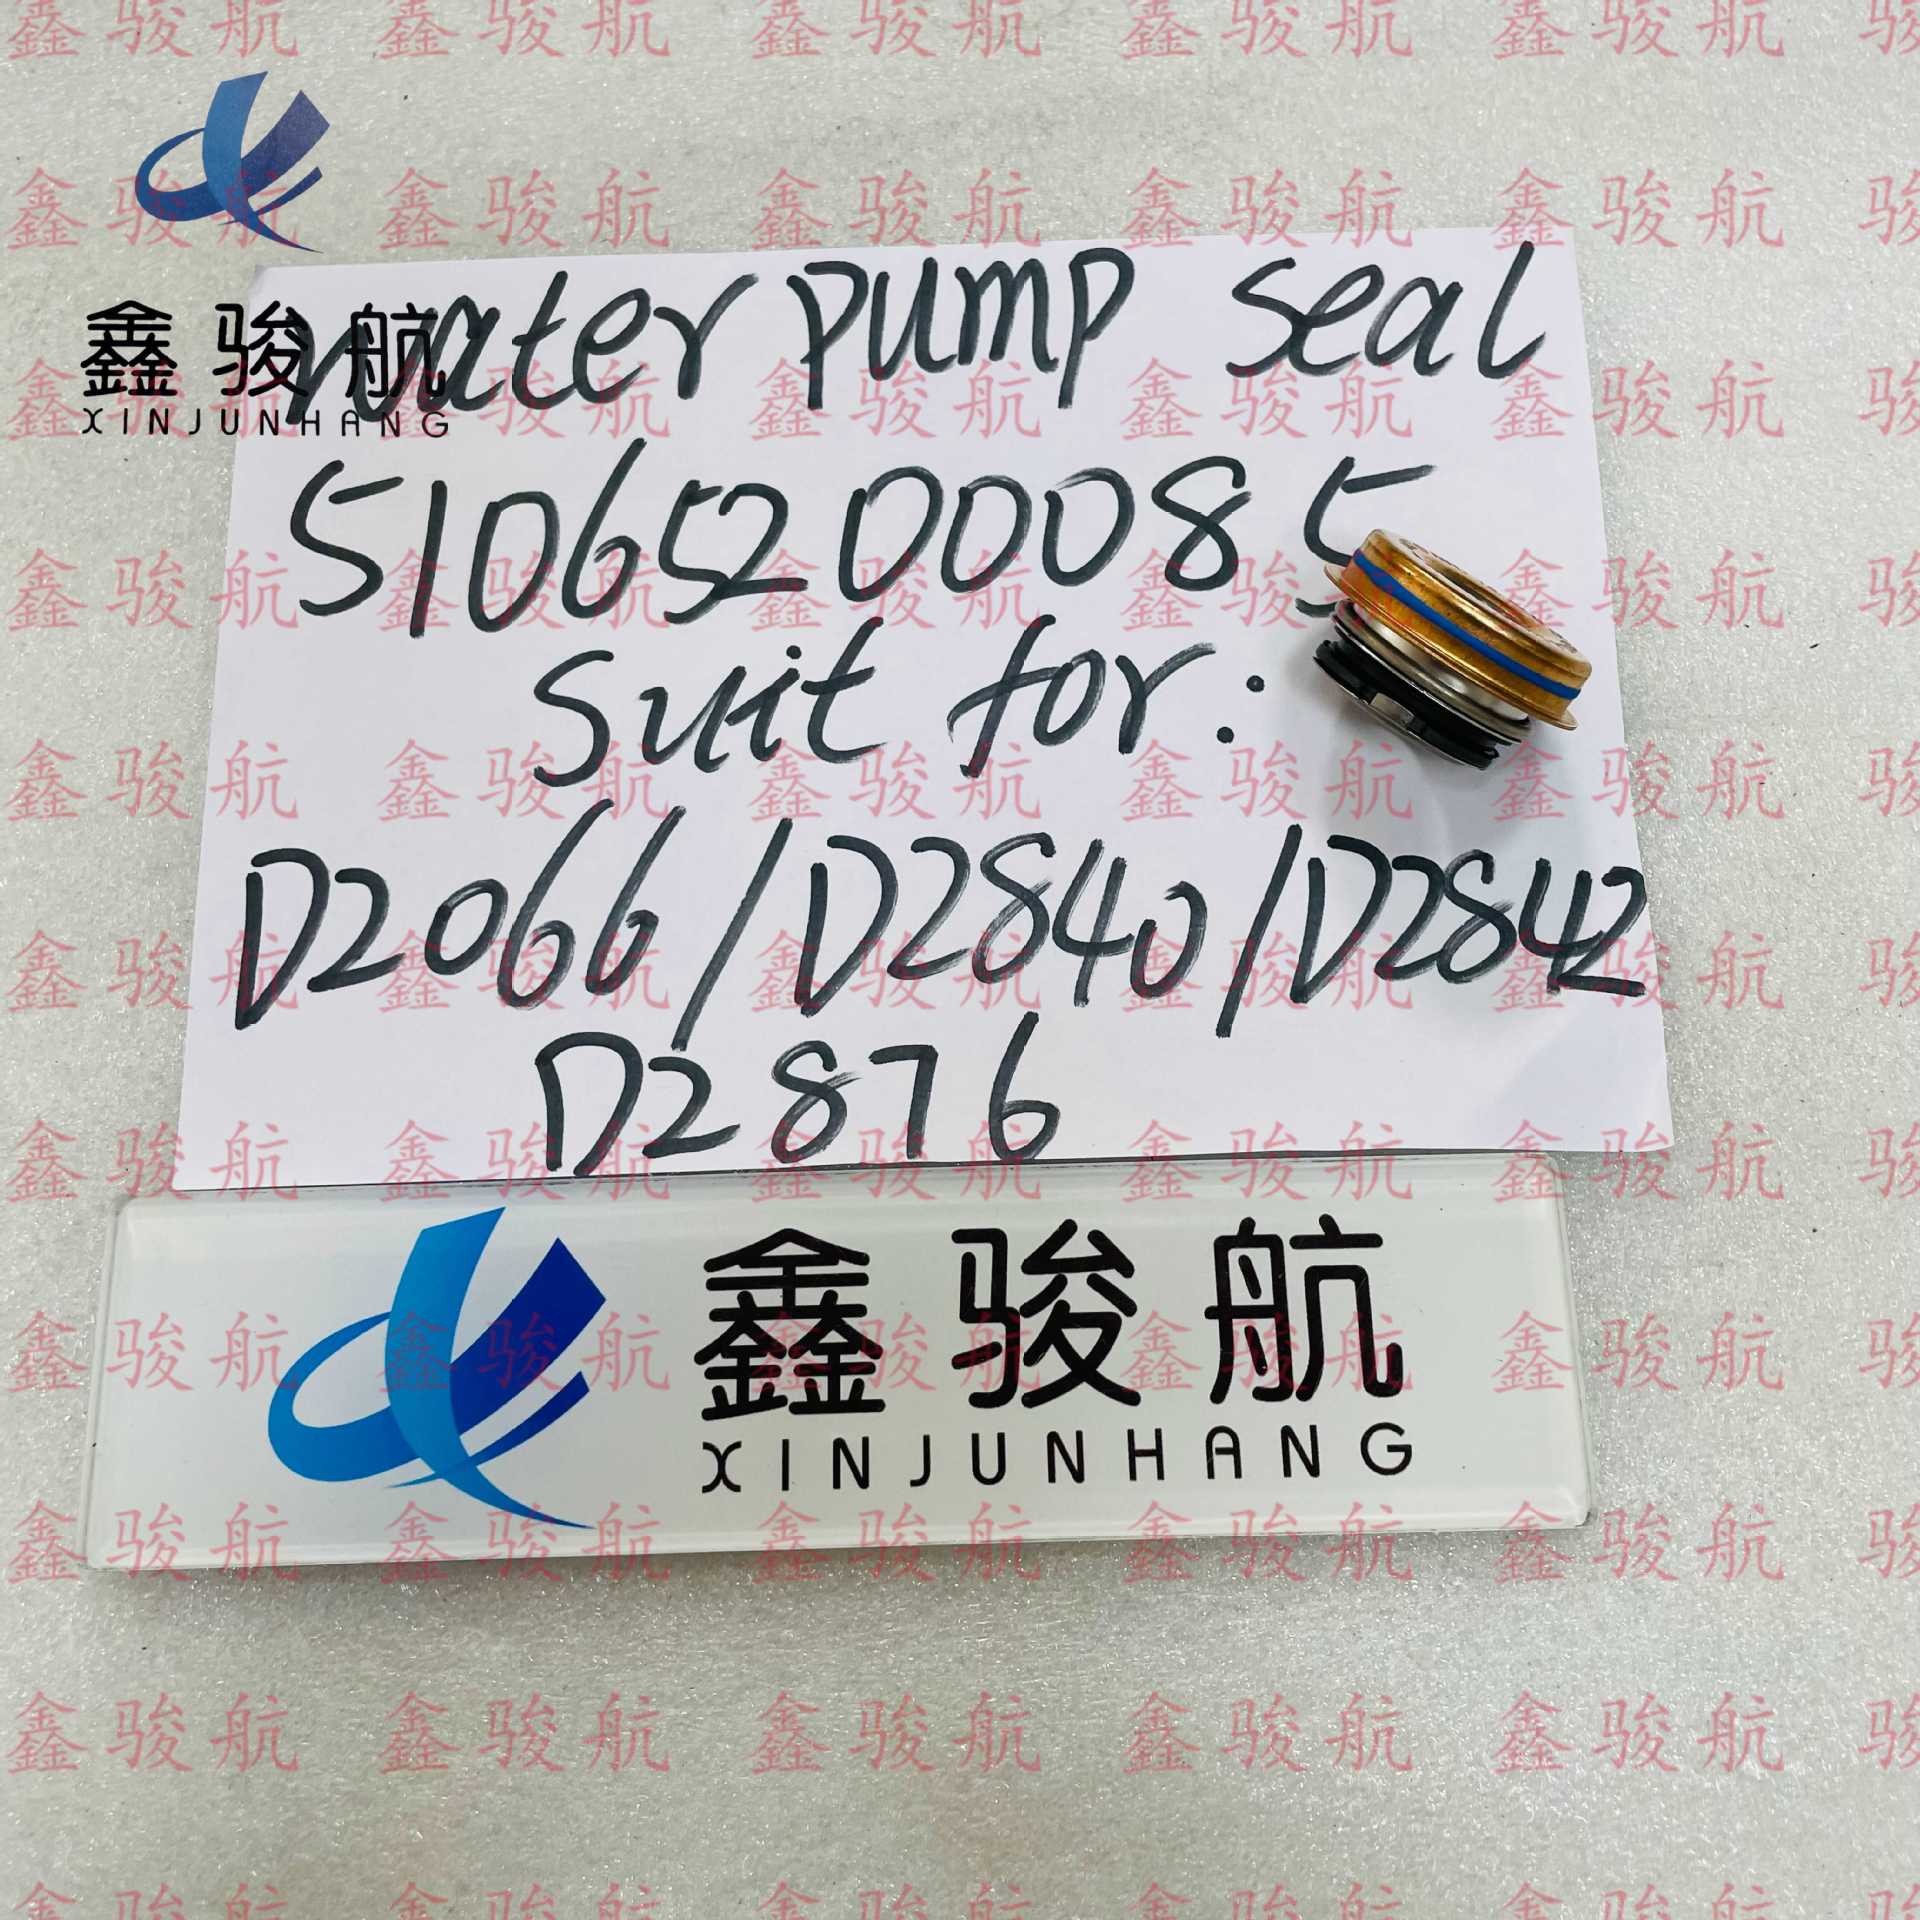 鑫骏航
XINJUNHANG
water pump seal
51065200085
suit for:
D2066/D2840/D2842
D2876
鑫骏航
XINJUNHANG